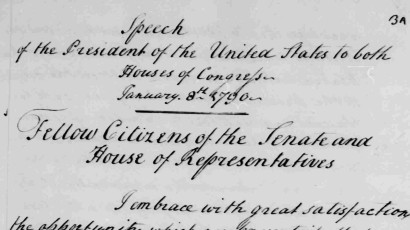 3A
Speech
of the President of the United States to both
Houses of Congress
January. 8th. 1790
Fellow Citizens of the Senate and
House of Representatives
I embrace with great satisfaction
the opportunity which